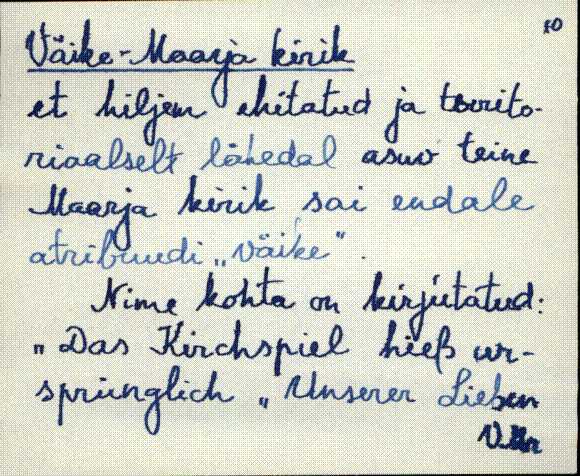 10
Väike-Maarja kirik
et hiljem ehitatud ja territo-
riaalselt lähedal asuv teine
Maarja kirik sai endale
atribuudi „Väike".
Nime kohta on kirjutatud:
„Das Kirchspiel hieß ur-
sprünglich „Unserer Lieben